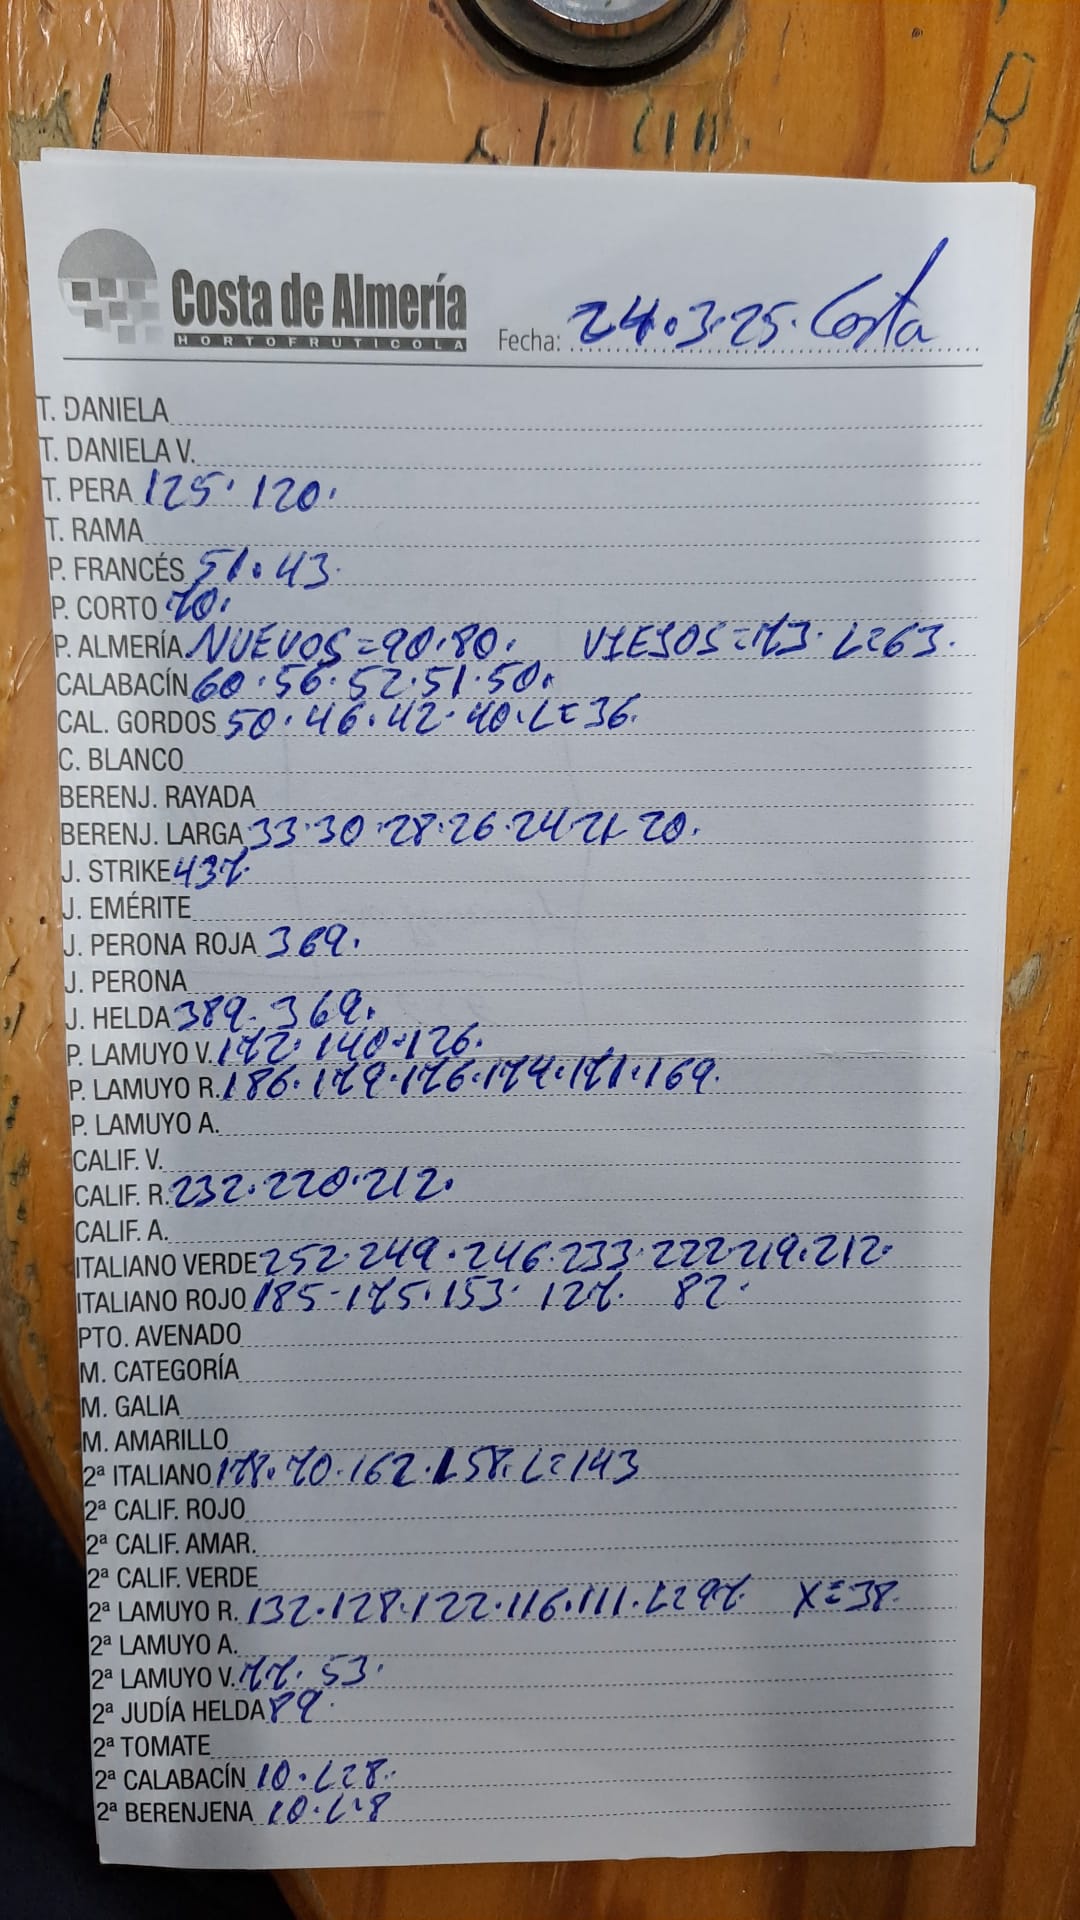 Costa de Almería
HORTOFRUTICOLA
Fecha: 24.3.25. Costa
T. DANIELA
T. DANIELA V.
T. PERA 125. 120.
T. RAMA
P. FRANCÉS 51. 43.
P. CORTO 70.
P. ALMERÍA NUEVOS=90.80. VIEJOS=73. L=63.
CALABACÍN 60.56.52.51.50.
CAL. GORDOS 50.46.42.40.L=36.
C. BLANCO
BERENJ. RAYADA
BERENJ. LARGA 33.30.28.26.24.21.20.
J. STRIKE 437.
J. EMÉRITE
J. PERONA ROJA 369.
J. PERONA
J. HELDA 389. 369.
P. LAMUYO V. 172. 140.126.
P. LAMUYO R. 186.179.176.174.171.169.
P. LAMUYO A.
CALIF. V.
CALIF. R. 232.220.212.
CALIF. A.
ITALIANO VERDE 252.249.246.233.222.219.212.
ITALIANO ROJO 185.175.153. 127. 82.
PTO. AVENADO
M. CATEGORÍA
M. GALIA
M. AMARILLO
2ª ITALIANO 178.70.162.158.L=143
2ª CALIF. ROJO
2ª CALIF. AMAR.
2ª CALIF. VERDE
2ª LAMUYO R. 132.128.122.116.111.L=97. X=38.
2ª LAMUYO A.
2ª LAMUYO V. 77. 53.
2ª JUDÍA HELDA 89.
2ª TOMATE
2ª CALABACÍN 10.L=8.
2ª BERENJENA 10.L=8